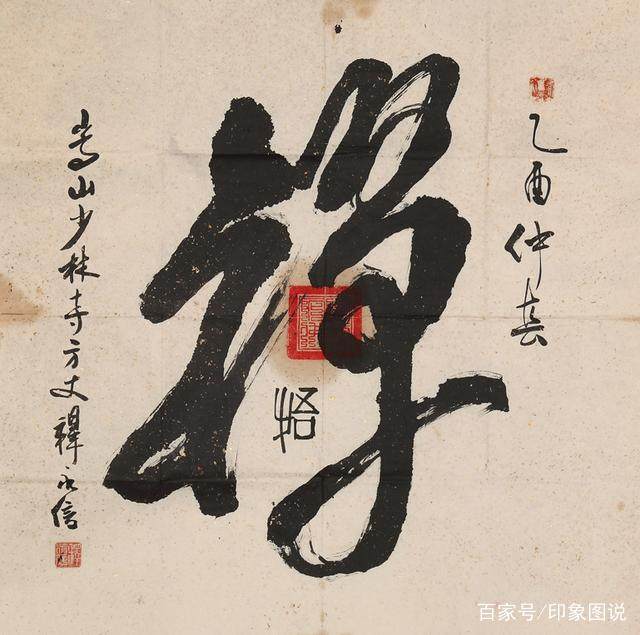 乙酉仲春
禪
悟
嵩山少林寺方丈釋永信
百家号/印象图说